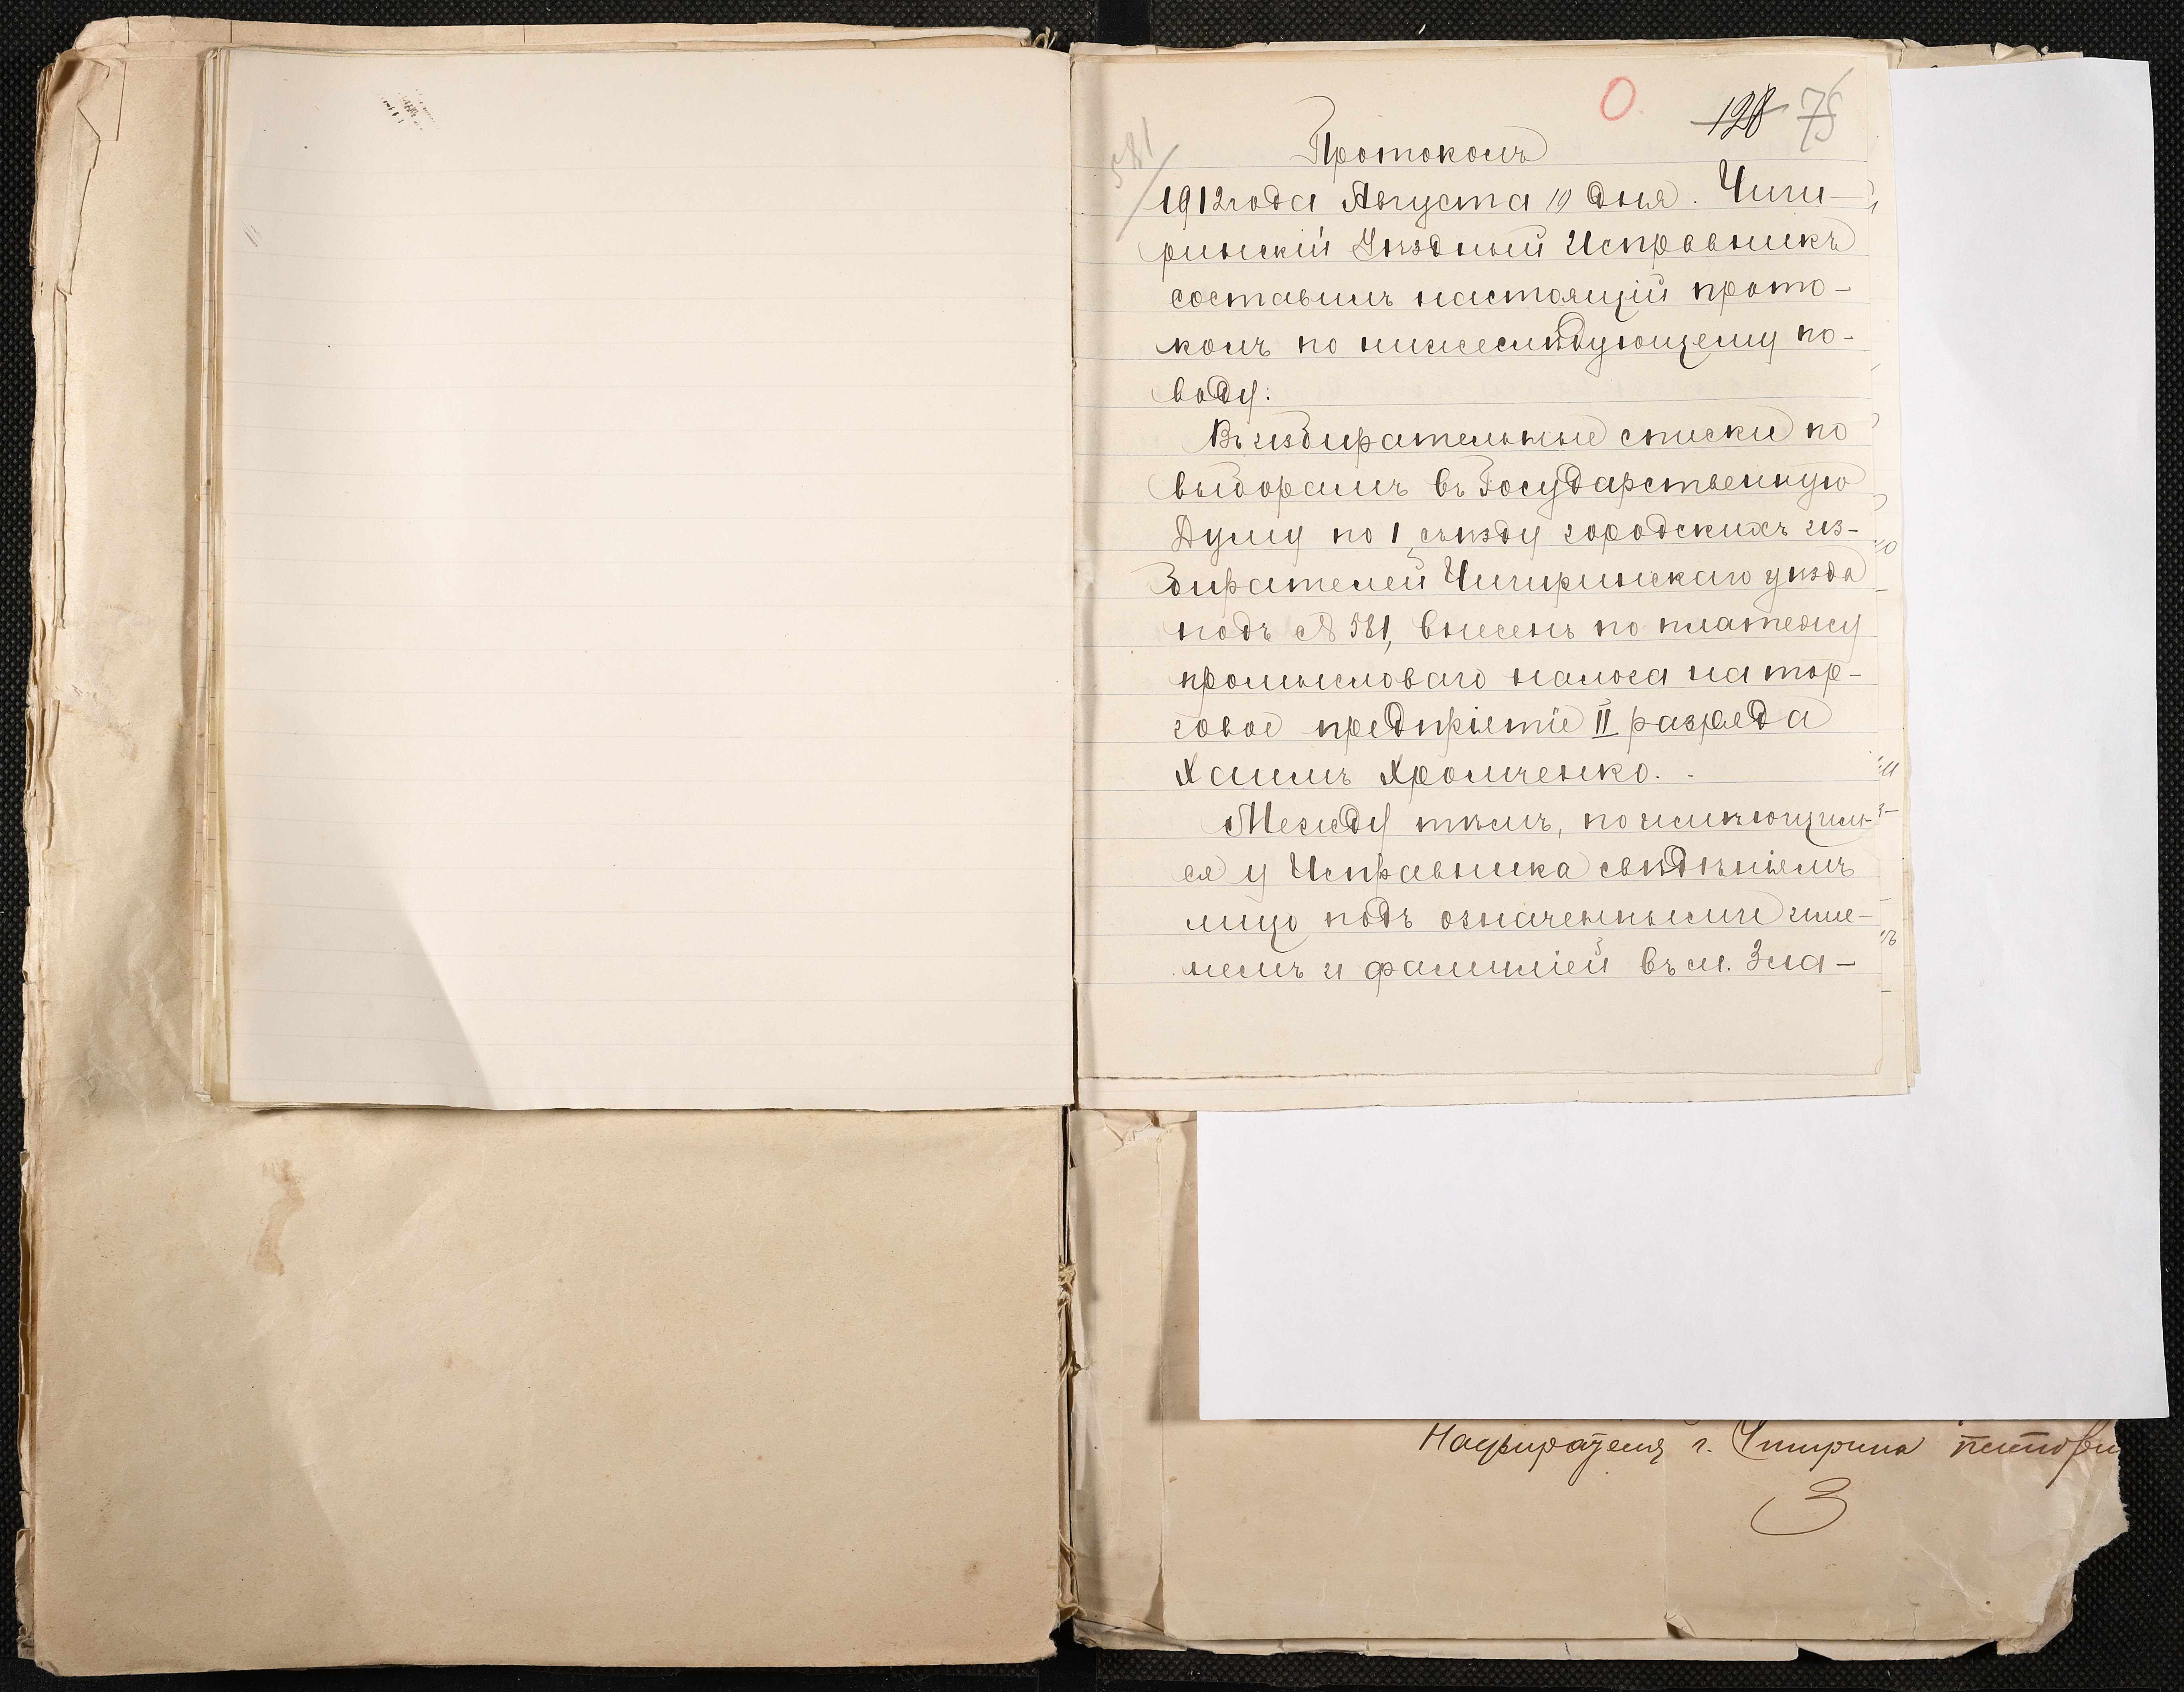 128 75
581
Протоколъ
1912 года Августа 19 дня. Чиги-
ринскій Уѣздный Исправникъ
составилъ настоящій прото-
колъ по нижеслѣдующему по-
воду:
Въ избирательные списки по
выборамъ въ Государственную
Думу по 1 съѣзду городскихъ из-
бирателей Чигиринскаго уѣзда
подъ № 581, внесенъ по платежу
промысловаго налога на тор-
говое предпріятіе II разряда
Хаимъ Хромченко.
Между тѣмъ, по имѣющим-
ся у Исправника свѣдѣніямъ
лицо подъ означенными име-
немъ и фамиліей въ м. Зла-
г. Чигирина
3